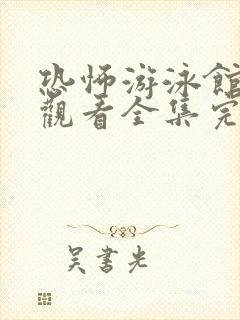 恐怖游泳館
觀看全集完
吴書光